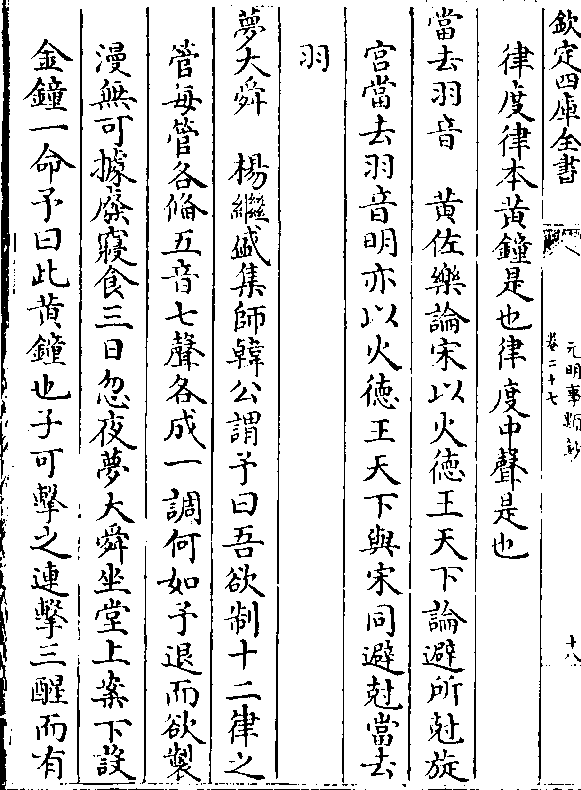 欽定四庫全書
元明事類鈔
卷二十七
十八
律度律本黃鐘是也律度中聲是也
當去羽音　黃佐樂論宋以火德王天下論避所尅旋
宮當去羽音明亦以火德王天下與宋同避尅當去
羽
夢大舜　楊繼盛集師韓公謂予曰吾欲制十二律之
管每管各俻五音七聲各成一調何如予退而欲製
漫無可據廢寢食三日忽夜夢大舜坐堂上案下設
金鐘一命予曰此黃鐘也子可擊之連擊三醒而有